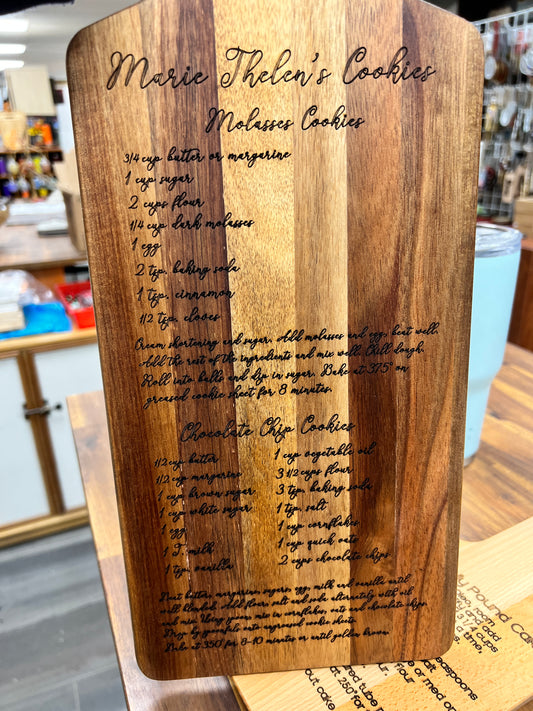 Marie Thelen's Cookies
Molasses Cookies
3/4 cup butter or margarine
1 cup sugar
2 cups flour
1/4 cup dark molasses
1 egg
2 tsp. baking soda
1 tsp. cinnamon
1/2 tsp. cloves
Cream shortening and sugar. Add molasses and egg, beat well.
Add the rest of the ingredients and mix well. Chill dough.
Roll into balls and dip in sugar. Bake at 375° on
greased cookie sheet for 8 minutes.
Chocolate Chip Cookies
1/2 cup butter
1/2 cup margarine
1 cup brown sugar
1 cup white sugar
1 egg
1 T. milk
1 tsp. vanilla
1 cup vegetable oil
3 1/2 cups flour
3 tsp. baking soda
1 tsp. salt
1 cup cornflakes
1 cup quick oats
2 cups chocolate chips
Beat butter, margarine, sugars, egg, milk and vanilla until
well blended. Add flour, salt and soda alternately with oil
and mix. Using spoon mix in cornflakes, oats and chocolate chips.
Drop by spoonfuls onto ungreased cookie sheets.
Bake at 350° for 8-10 minutes or until golden brown.
Pound Cake
room
add
3 1/4 cups
time
easpoons
or med or
tube
at 250° for
out cake